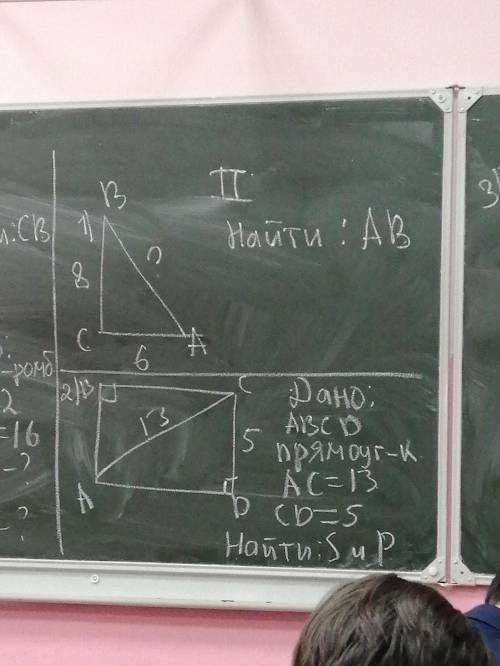 II
и: CB
1)
B
8
?
C
6
A
Найти: AB
3)
-ромб
2
=16
-?
-?
2) B
C
13
5
A
D
Дано:
ABCD
прямоуг-к
AC=13
CD=5
Найти: S и P